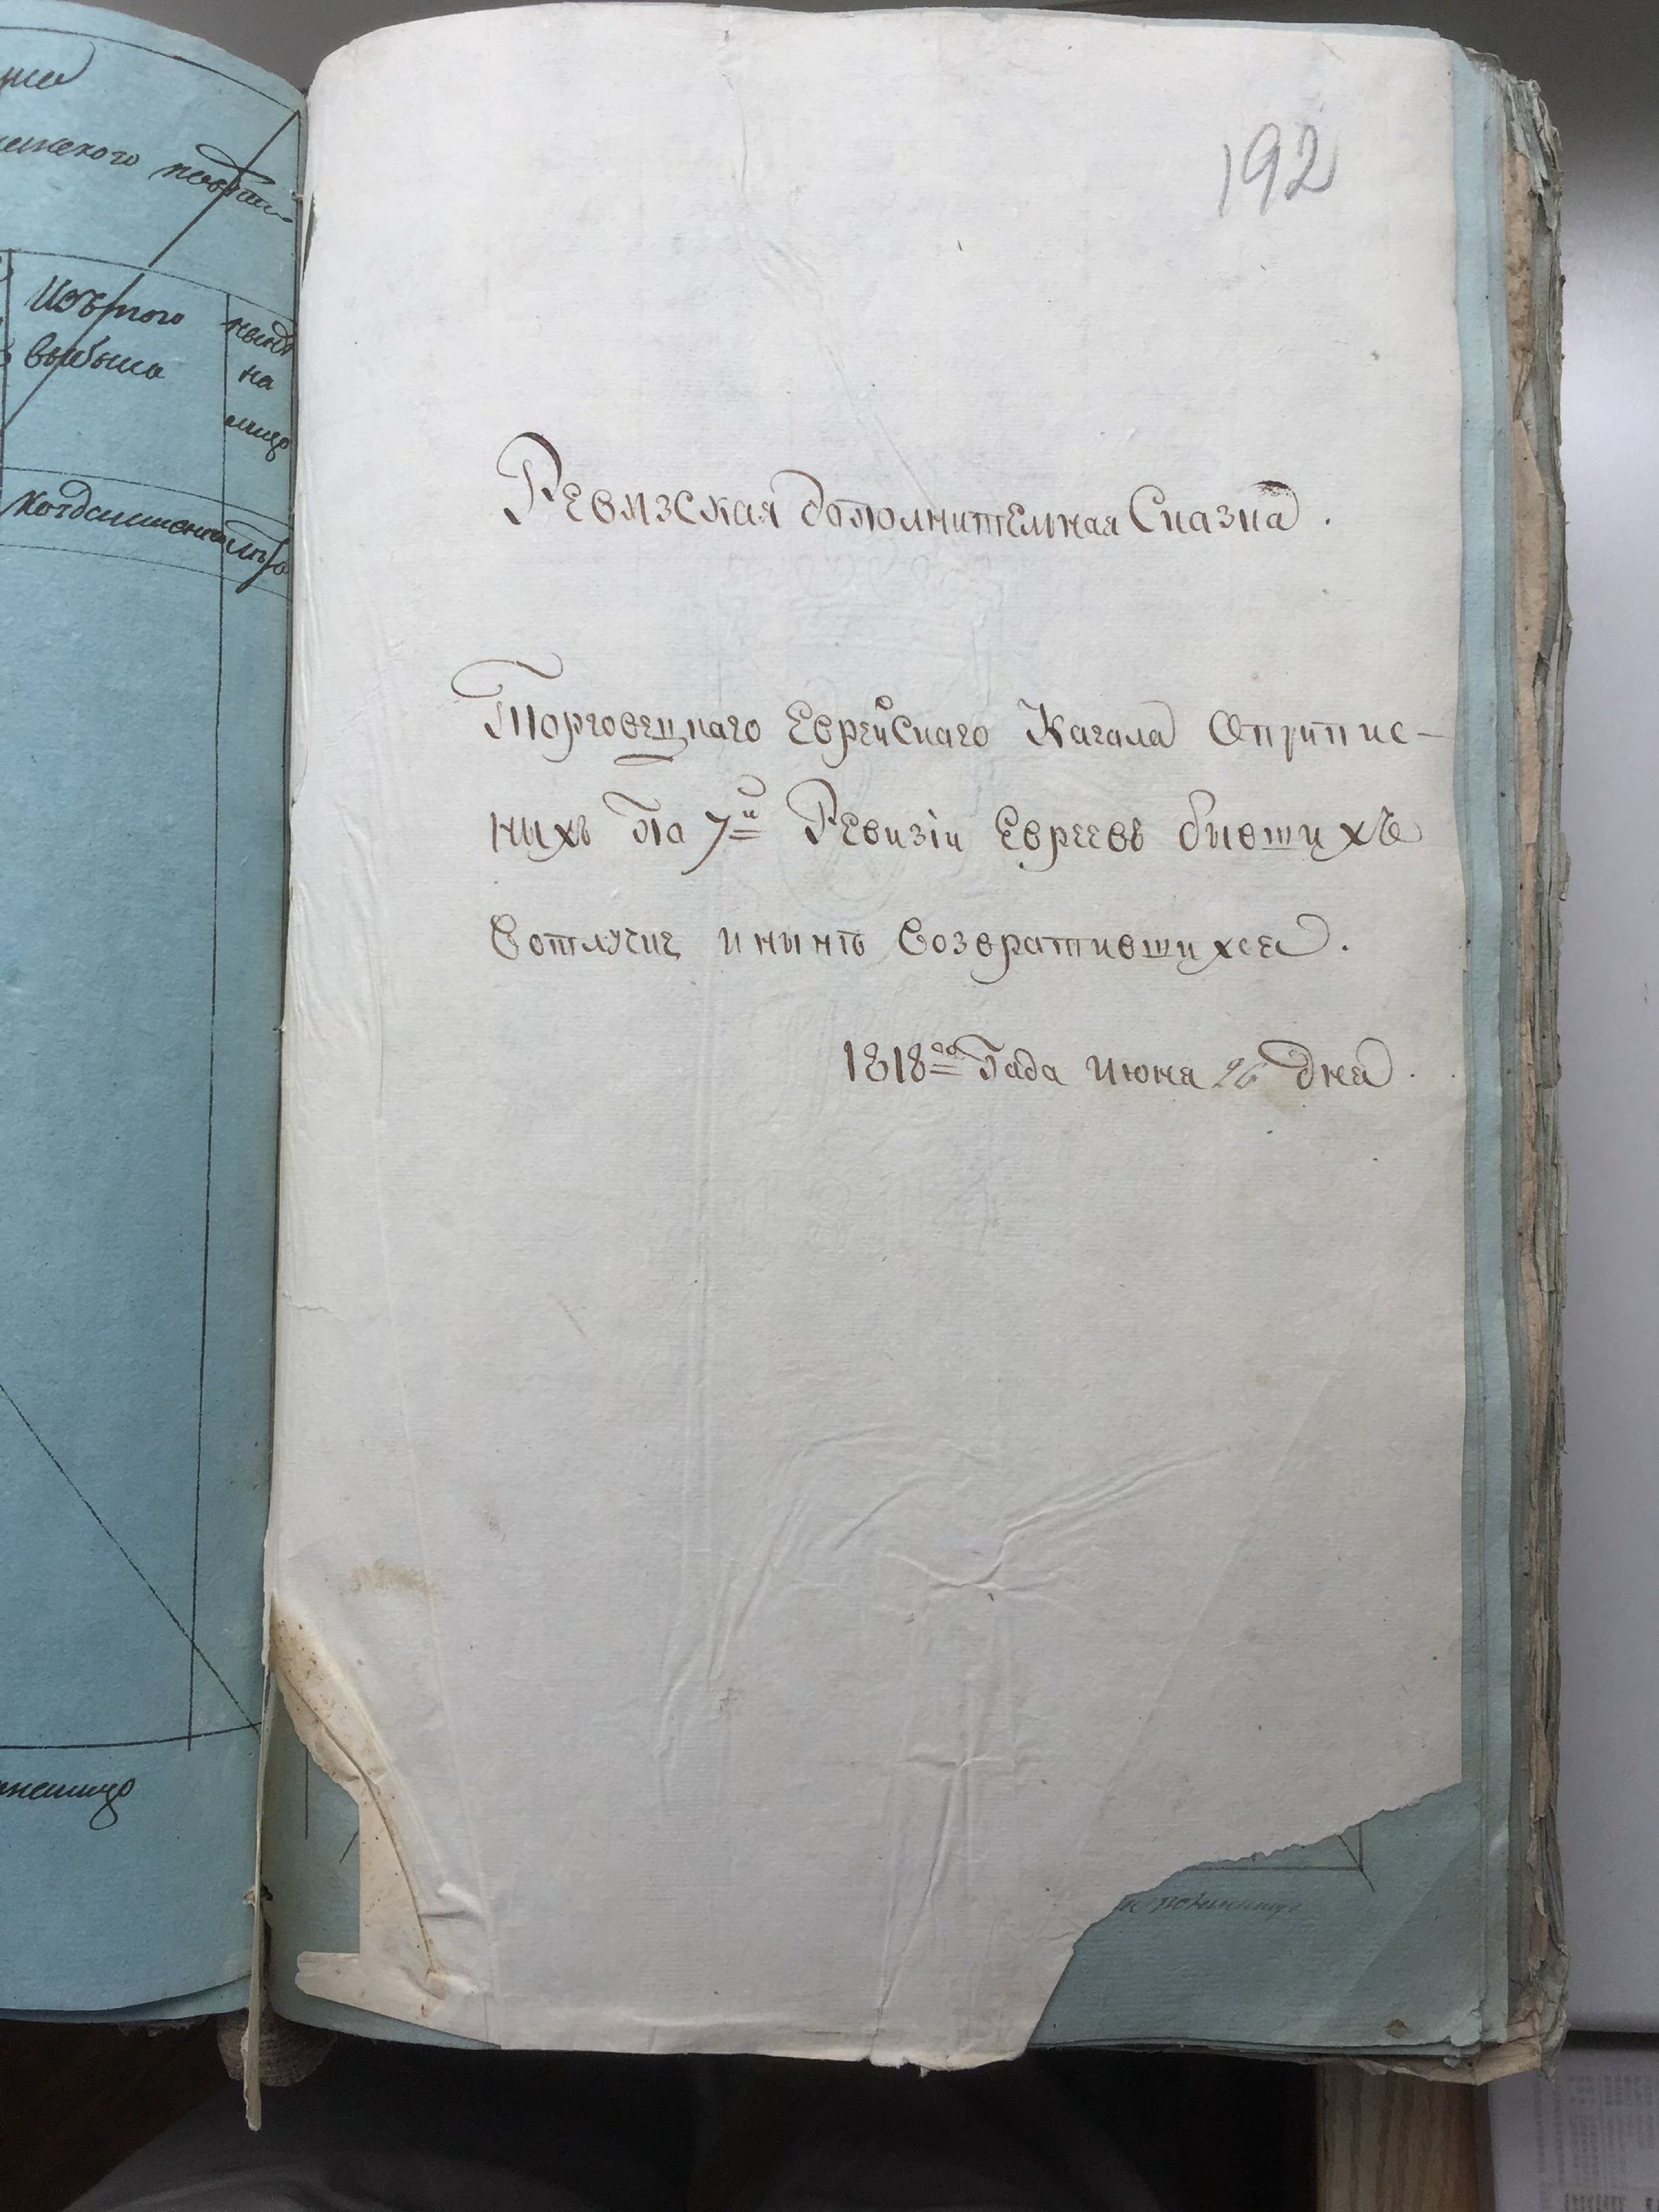 192
Изъ того
выбыло
ныне
на
лицо
Ревизская дополнителная Сказка.
Торговецкаго Еврейскаго Кагала Оприпис-
ныхъ По 7й Ревизіи Евреевъ бывшихъ
Вотлучке и ныне Возвратившихся.
1818го Года Июня 26 дня.